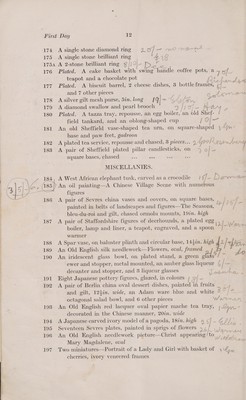 First Day 12
174 A single stone diamond ring
175 A single stone brilliant ring
175A A 2-stone brilliant ring
176 Plated. A cake basket with swing handle coffee pots, a
teapot and a chocolate pot
177 Plated. A biscuit barrel, 2 cheese dishes, 3 bottle frames
and 7 other pieces
178 A silver gilt mesh purse, 5in. long
179 A diamond swallow and pearl brooch
180 Plated. A tazza tray, repousse, an egg boiler, an old Shef-
field tankard, and an oblong-shaped cup
181 An old Sheffield vase-shaped tea urn, on square-shaped
base and paw feet, gadroon
182 A plated tea service, repousse and chased, 3 pieces
183 A pair of Sheffield plated pillar candlesticks, on
square bases, chased
MISCELLANIES.
184 A West African elephant tusk, carved as a crocodile
185 An oil painting—A Chinese Village Scene with numerous
figures
186 A pair of Sevres china vases and covers, on square bases,
painted in belts of landscapes and figures—The Seasons,
bleu-du-roi and gilt, chased ormolu mounts, 18in. high
187 A pair of Staffordshire figures of deerhounds, a plated egg
boiler, lamp and liner, a teapot, engraved, and a spoon
warmer
188 A Spar vase, on baluster plinth and circular base, 14½in. high
189 An Old English silk needlework—Flowers, oval, framed
190 An iridescent glass bowl, on plated stand, a green glass
ewer and stopper, metal mounted, an amber glass liqueur
decanter and stopper, and 8 liqueur glasses
191 Eight Japanese pottery figures, glazed, in colours
192 A pair of Berlin china oval dessert dishes, painted in fruits
and gilt, 12½in. wide, an Adam ware blue and white
octagonal salad bowl, and 6 other pieces
193 An Old English red lacquer oval papier mache tea tray,
decorated in the Chinese manner, 20in. wide
194 A Japanese carved ivory model of a pagoda, 18in. high
195 Seventeen Sevres plates, painted in sprigs of flowers
196 An Old English needlework picture—Christ appearing to
Mary Magdalene, oval
197 Two miniatures—Portrait of a Lady and Girl with basket of
cherries, ivory veneered frames